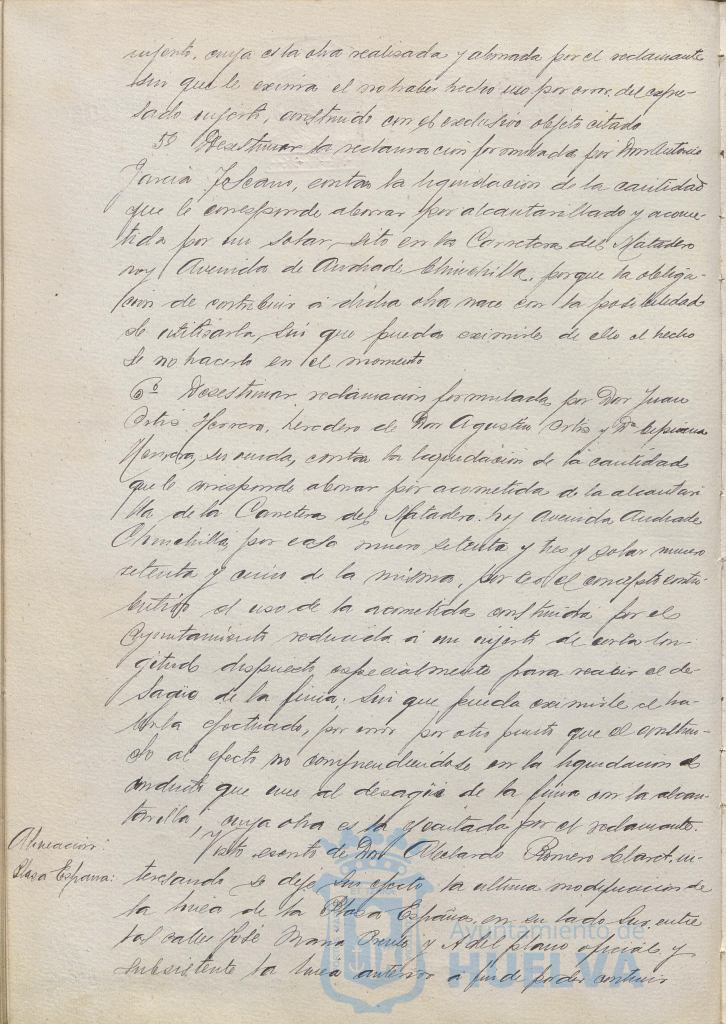 injerto, cuya es la obra realizada y abonada por el reclamante
sin que le exima el no haber hecho uso por error, del expre-
sado injerto, construido con el exclusivo objeto citado
5º Desestimar la reclamación formulada por Don Antonio
García Toscano, contra la liquidación de la cantidad
que le corresponde abonar por alcantarillado y acome-
tida por un solar, sito en la Carretera del Matadero
hoy Avenida de Andrade Chinchilla, porque la obliga-
ción de contribuir a dicha obra nace con la posibilidad
de utilizarla, sin que pueda eximirle de ello el hecho
de no hacerlo en el momento
6º Desestimar reclamación formulada por Don Juan
Ortiz Herrera, heredero de Don Agustín Ortiz y Dª Cipriana
su viuda, contra la liquidación de la cantidad
que le corresponde abonar por acometida de la alcantari
lla de la Carretera del Matadero, hoy Avenida Andrade
Chinchilla, por casa número setenta y tres y solar número
setenta y cinco de la misma, por ser el concepto contri-
butivo el uso de la acometida construida por el
Ayuntamiento reducida a un injerto de corta lon-
gitud dispuesto especialmente para recibir el de-
sagüe de la finca; sin que pueda eximirle el ha-
berla efectuado, por error por otro punto que el construi-
do al efecto no comprendiéndose en la liquidación el
conducto que une al desagüe de la finca con la alcan-
tarilla cuya obra es la ejecutada por el reclamante.
Alineación:
Plaza España:
Visto escrito de Don Abelardo Romero Claret, in-
teresando se deje sin efecto la última modificación de
la línea de la Plaza España, en su lado Sur, entre
las calles José María y A del plano oficial, y
subsistente la línea anterior a fin de poder construir
Ayuntamiento de
HUELVA